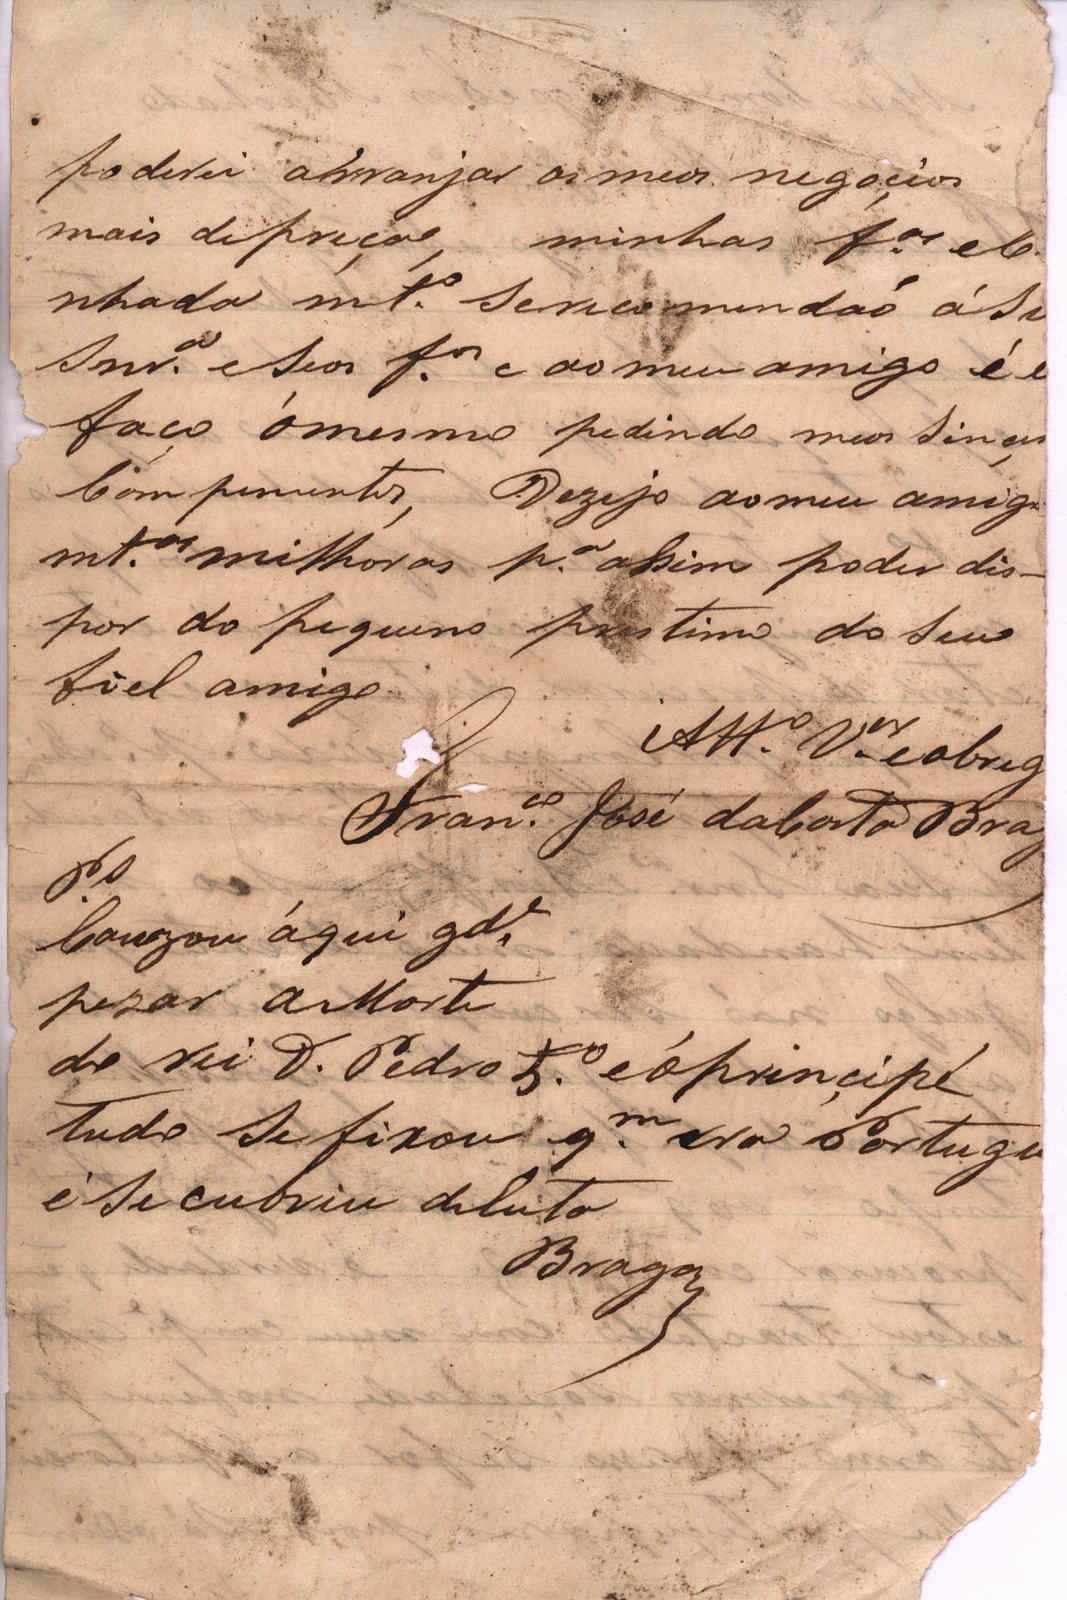 poderei ahrranjar os meos negocios
mais depreça, minhas f.as e C
nhada mt.o Serecomendaõ á Su
Snr.a e Seos f.os e ao meu amigo é e
faço ómesmo pedindo meos Sinçer
Comprimentos, Dezejo aomeu amigo
mt.as milhoras p.a assim poder dis-
por do pequeno prestimo do Seu
fiel amigo
Att.o V.or e obrig
Fran.co José daCosta Brag
P.S
Cauzou áqui gd.e
pezar a Morte
do rei D. Pedro 5.o e óprinçipé
tudo Se fixou q.m era Portugu
é Se cubriu deluto
Braga